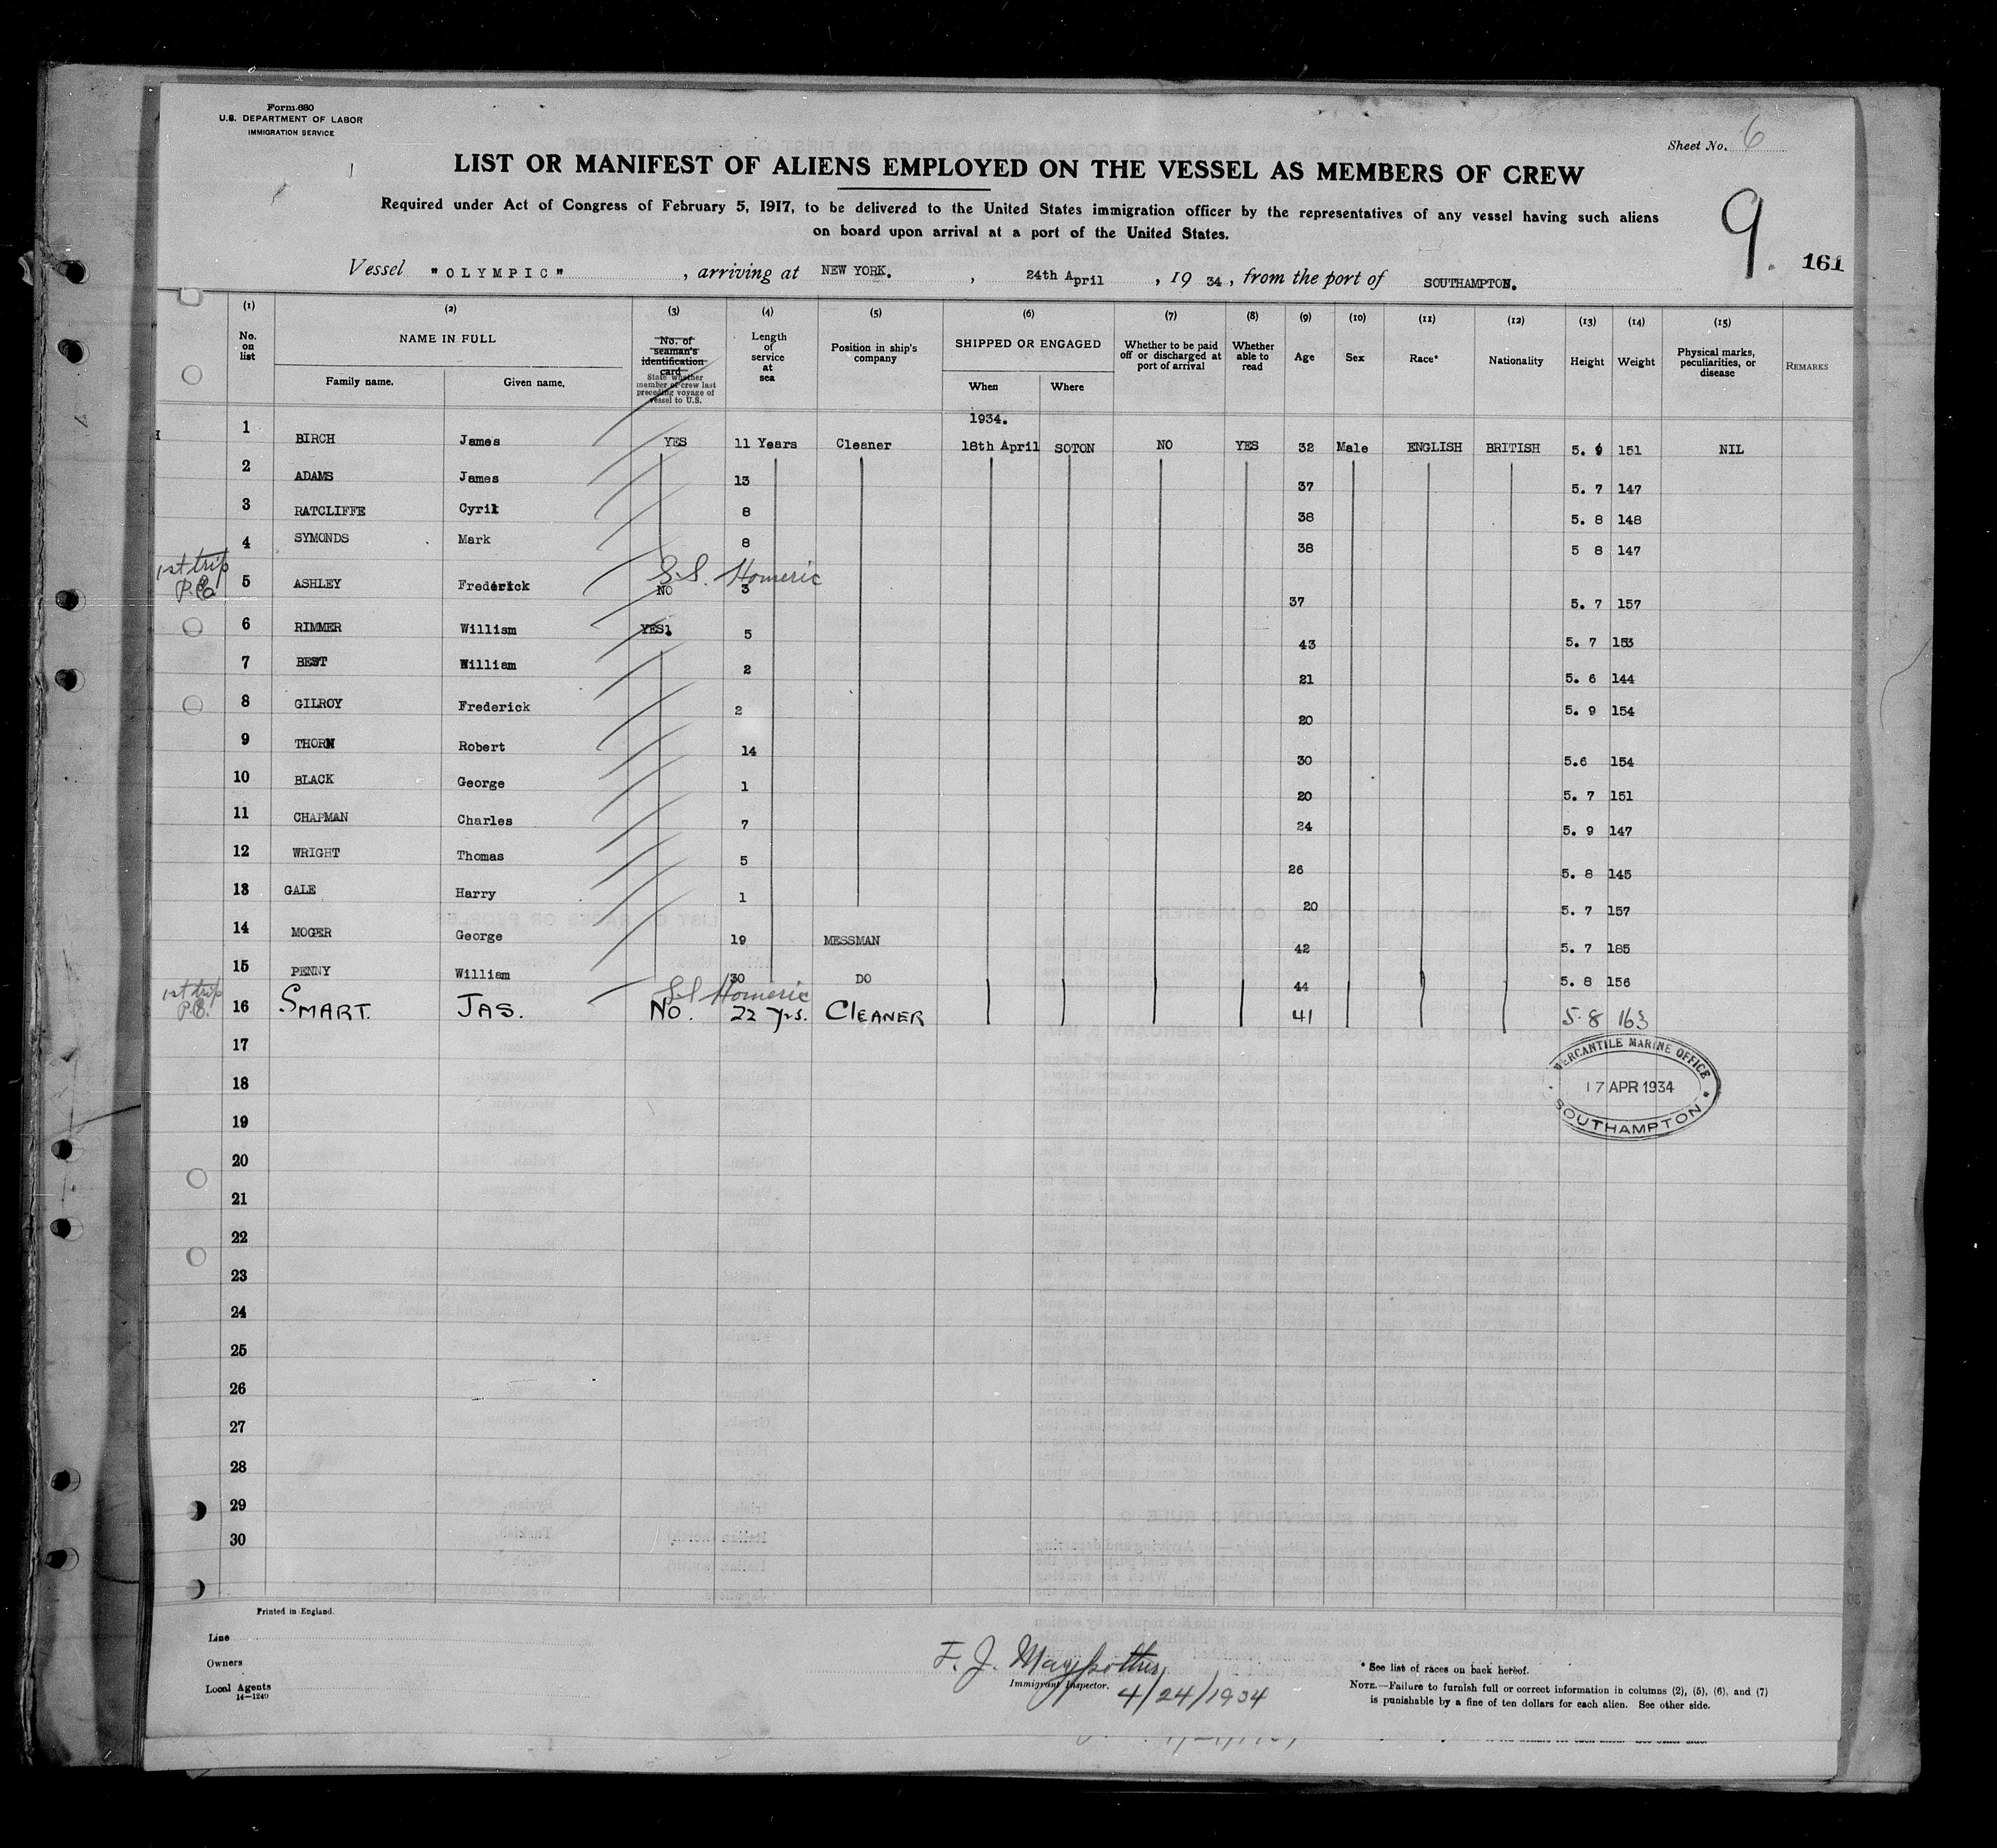 Form 680
U.S. DEPARTMENT OF LABOR
IMMIGRATION SERVICE
Sheet No. 6
LIST OR MANIFEST OF ALIENS EMPLOYED ON THE VESSEL AS MEMBERS OF CREW
Required under Act of Congress of February 5, 1917, to be delivered to the United States immigration officer by the representatives of any vessel having such aliens
on board upon arrival at a port of the United States.
9.
161
Vessel "OLYMPIC", arriving at NEW YORK., 24th April, 1934, from the port of SOUTHAMPTON.
(1) (2) (3) (4) (5) (6) (7) (8) (9) (10) (11) (12) (13) (14) (15)
No. on list
NAME IN FULL
Family name. Given name.
No. of seaman's identification card
State whether member of crew last preceding voyage of vessel to U.S.
Length of service at sea
Position in ship's company
SHIPPED OR ENGAGED
When Where
Whether to be paid off or discharged at port of arrival
Whether able to read
Age
Sex
Race*
Nationality
Height
Weight
Physical marks, peculiarities, or disease
REMARKS
1934.
1 BIRCH James YES 11 Years Cleaner 18th April SOTON NO YES 32 Male ENGLISH BRITISH 5. 151 NIL
2 ADAMS James 13 37 5. 7 147
3 RATCLIFFE Cyril 8 38 5. 8 148
4 SYMONDS Mark 8 38 5 8 147
1st trip
S.S. Homeric
5 ASHLEY Frederick NO 3 37 5. 7 157
6 RIMMER William YES 5 43 5. 7 153
7 BEST William 2 21 5. 6 144
8 GILROY Frederick 2 20 5. 9 154
9 THORN Robert 14 30 5.6 154
10 BLACK George 1 20 5. 7 151
11 CHAPMAN Charles 7 24 5. 9 147
12 WRIGHT Thomas 5 26 5. 8 145
13 GALE Harry 1 20 5. 7 157
14 MOGER George 19 MESSMAN 42 5. 7 185
15 PENNY William 30 DO 44 5. 8 156
1st trip
SS Homeric
16 SMART. JAS. NO. 22 yrs. CLEANER 41 5.8 163
17
MERCANTILE MARINE OFFICE
17 APR 1934
SOUTHAMPTON
18
19
20
21
22
23
24
25
26
27
28
29
30
Printed in England.
Line
Owners
Local Agents
14-1240
F. J.
Immigrant Inspector.
4/24/1934
* See list of races on back hereof.
NOTE.—Failure to furnish full or correct information in columns (2), (5), (6), and (7)
is punishable by a fine of ten dollars for each alien. See other side.